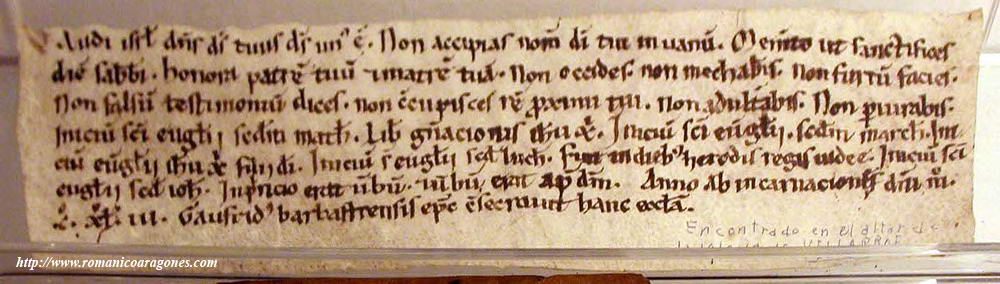 Audi isrl dns ds tuus ds un' ē. Non accipias nom̄ di tui in vanū. Memento ut sanctifices
diē sabbi. honora patrē tuū & matrē tuā. Non occides. non mechabis. Non furtū facies.
Non falsū testimoniū dices. non c̄cupisces rē proximi tui. non adultabis. Non piurabis.
Iniciū sci eugl̄ij sedm̄ math. Lib gn̄acionis ihu xp̄i. Iniciū sci eugl̄ij. sedm̄ march. Ini
ciū eugl̄ij ihu xp̄i filij di. Iniciū s eugl̄ij sed̄ luch. Fuit in dieb' herodis regis iudee. Iniciū sci
eugl̄ij sed̄ ioh. In p̄ncipio erat ūbū. & ūbū erat ap̄ dm̄. Anno ab incarnacione dn̄i mº.
cº. xl. iii. Gaufrid' barbastrensis ep̄c c̄secravit hanc eccl̄am.
Encontrado en el altar de
http://www.romanicoaragones.com